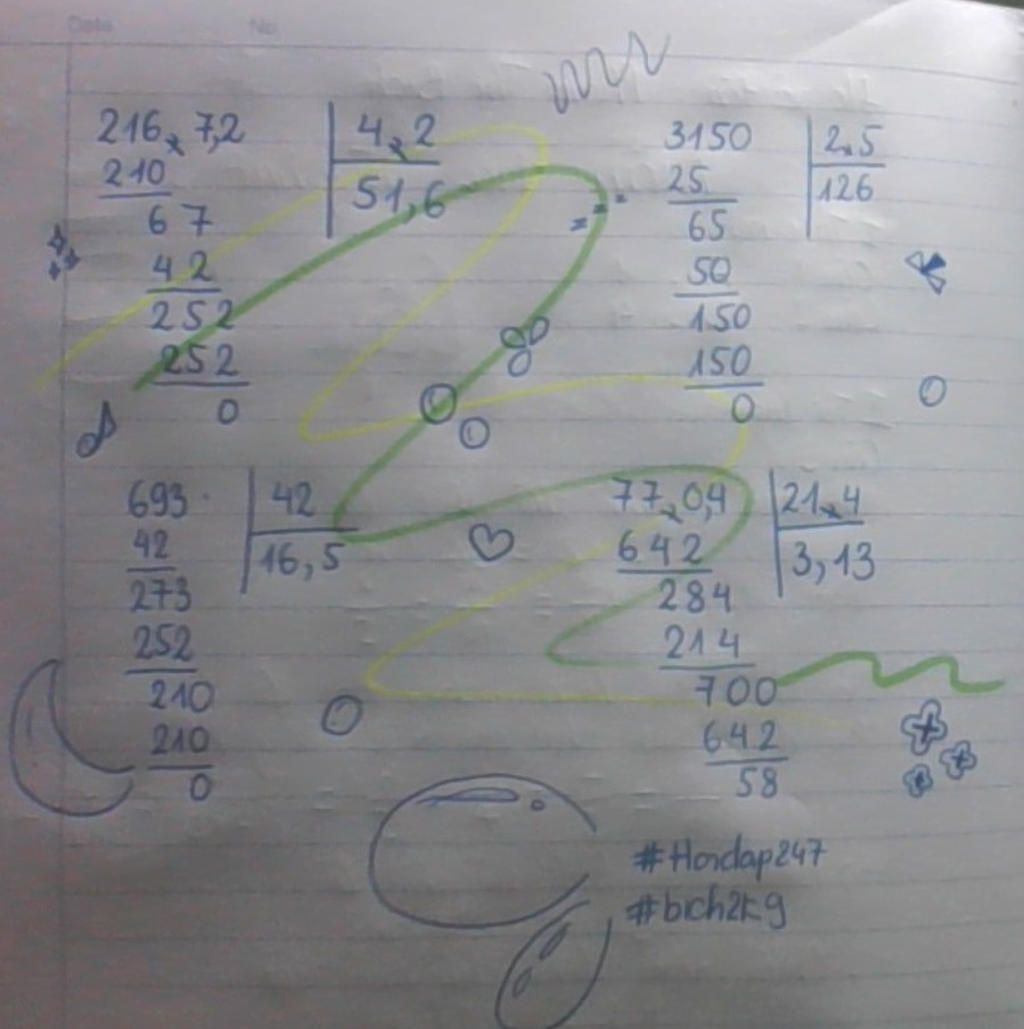 Date No
216,7,2 4,2
210 51,6
67
42
252
252
0
3150 2,5
25 126
65
50
150
150
0
693 42
42 16,5
273
252
210
210
0
77,0,4 21,4
642 3,13
284
214
700
642
58
#Hoidap247
#bich2k9